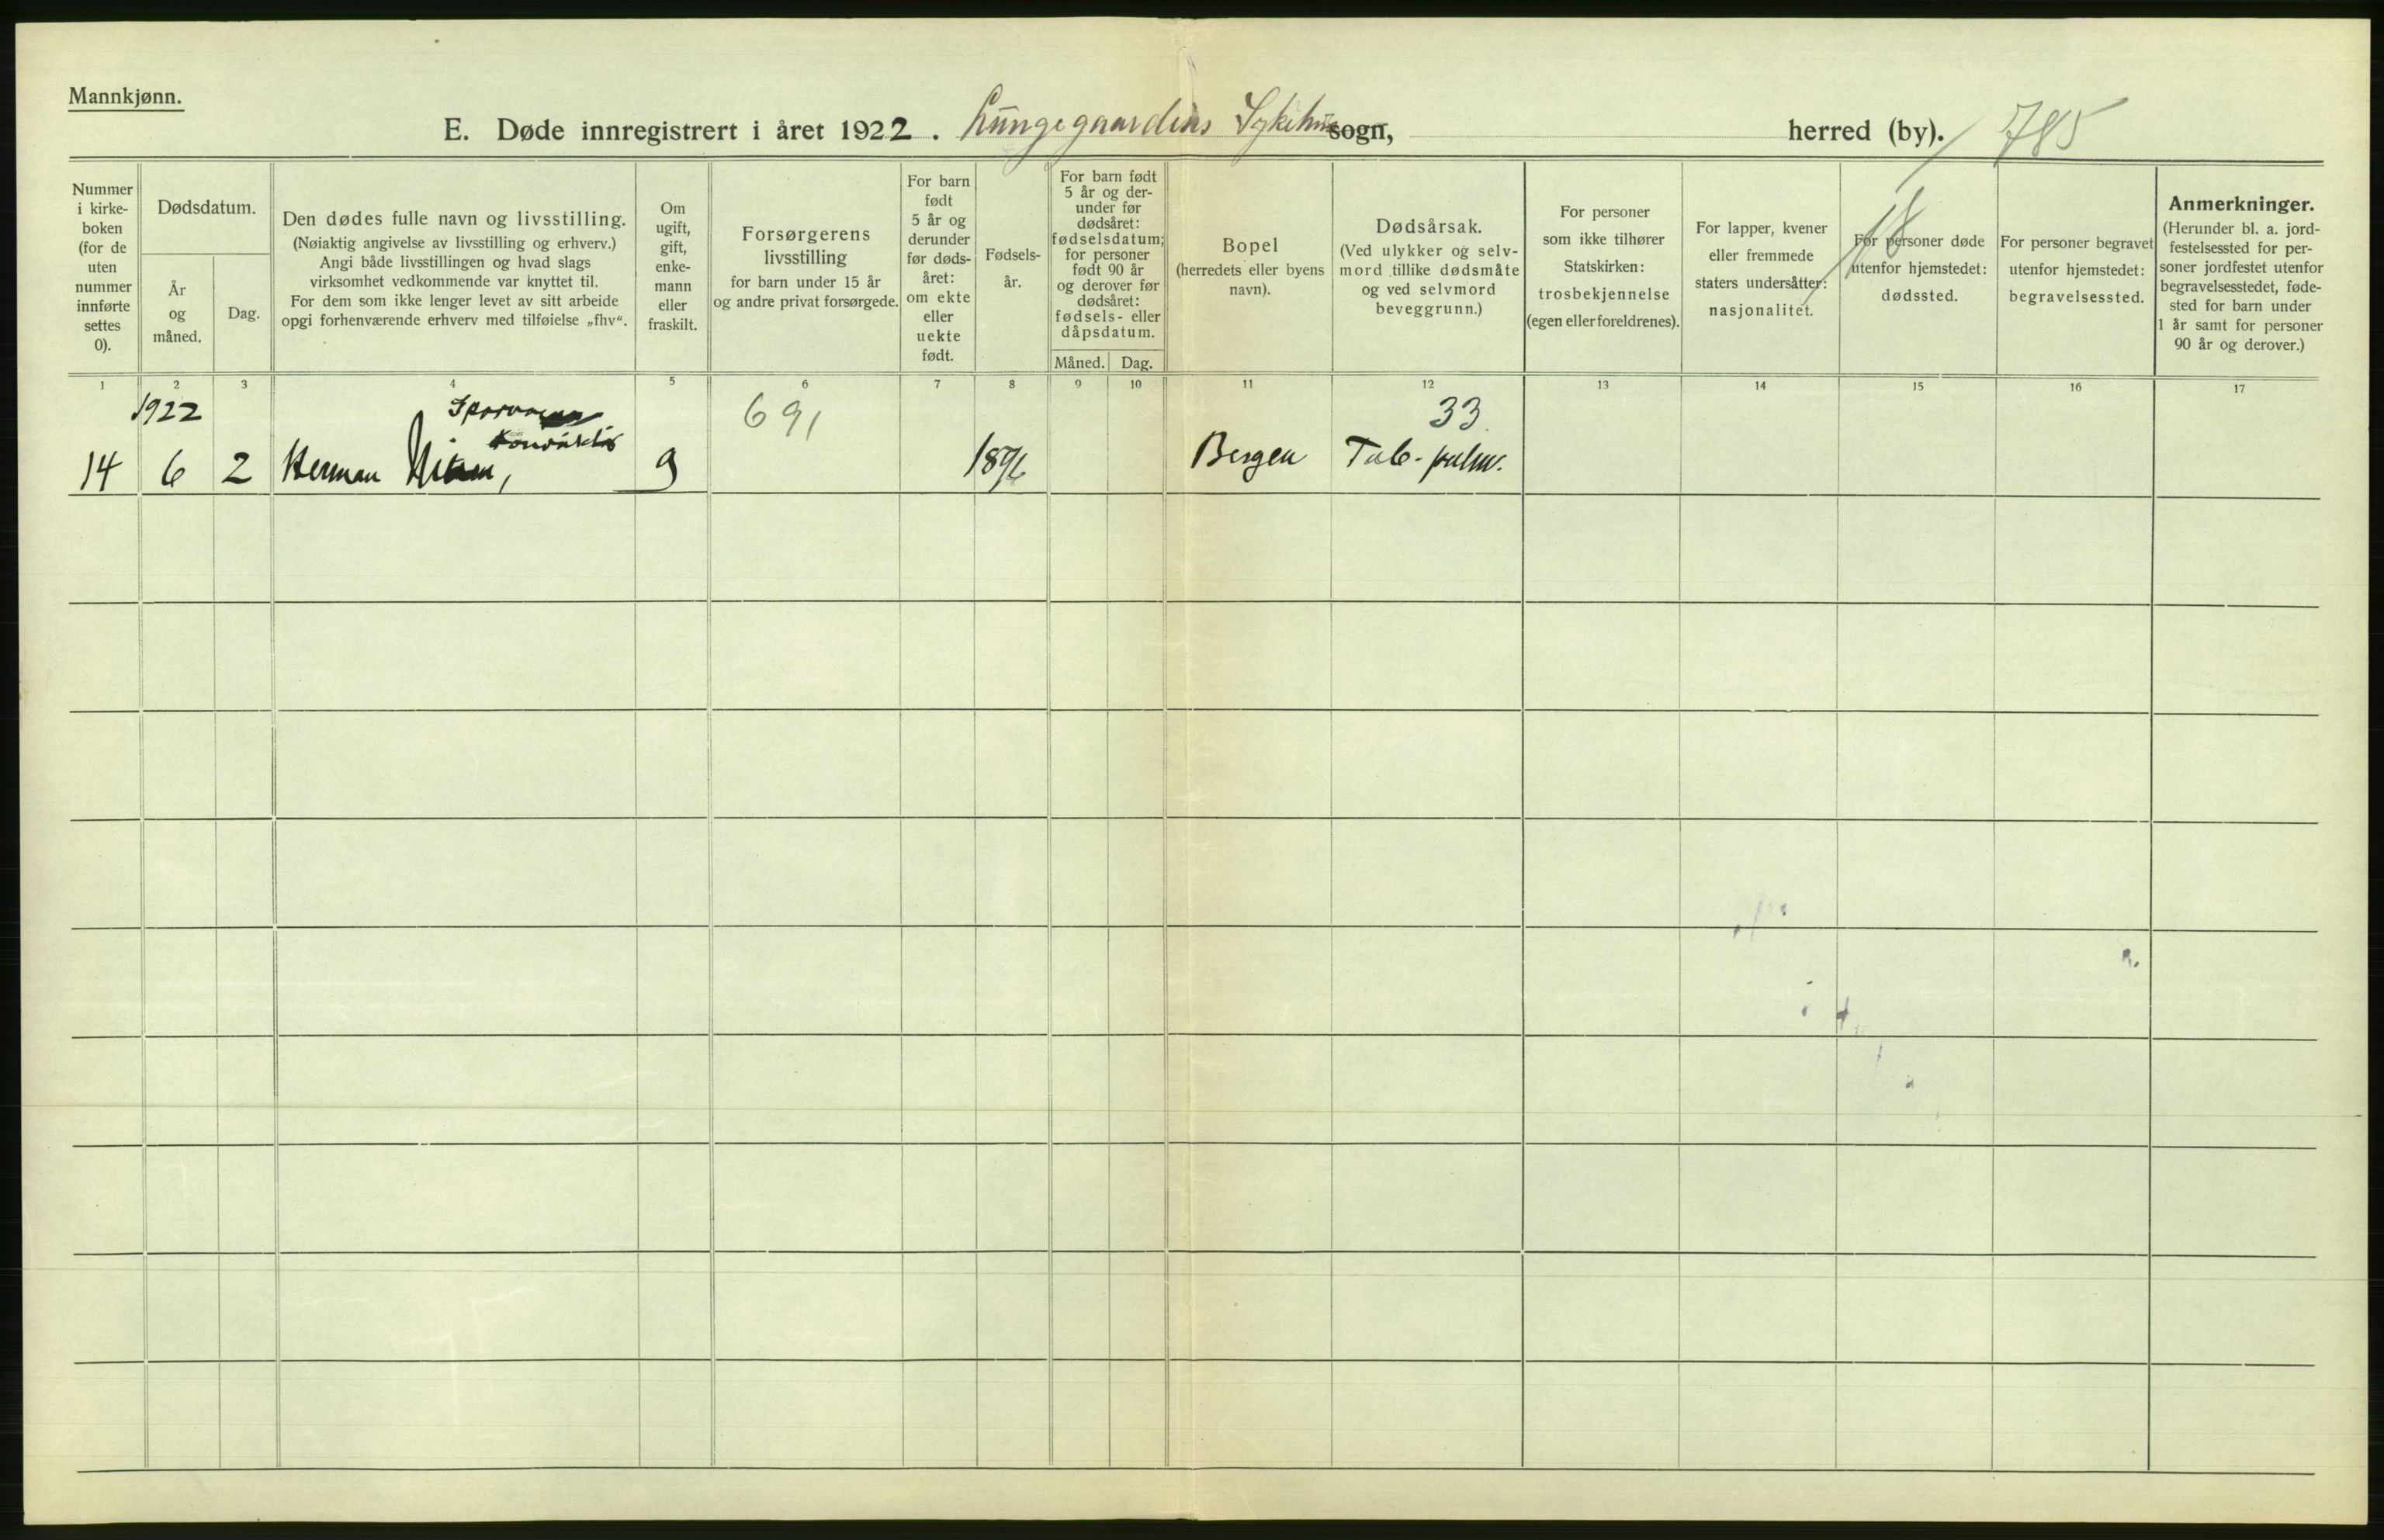 Mannkjønn.
E. Døde innregistrert i året 1922. Lungegaardens Sykehus sogn, herred (by). 785
18
Nummer
i kirke-
boken
(for de
uten
nummer
innførte
settes
0).
Dødsdatum.
År
og
måned.
Dag.
Den dødes fulle navn og livsstilling.
(Nøiaktig angivelse av livsstilling og erhverv.)
Angi både livsstillingen og hvad slags
virksomhet vedkommende var knyttet til.
For dem som ikke lenger levet av sitt arbeide
opgi forhenværende erhverv med tilføielse „fhv“.
Om
ugift,
gift,
enke-
mann
eller
fraskilt.
Forsørgerens
livsstilling
for barn under 15 år
og andre privat forsørgede.
For barn
født
5 år og
derunder
før døds-
året:
om ekte
eller
uekte
født.
Fødsels-
år.
For barn født
5 år og der-
under før
dødsåret:
fødselsdatum;
for personer
født 90 år
og derover før
dødsåret:
fødsels- eller
dåpsdatum.
Måned. Dag.
Bopel
(herredets eller byens
navn).
Dødsårsak.
(Ved ulykker og selv-
mord tillike dødsmåte
og ved selvmord
beveggrunn.)
For personer
som ikke tilhører
Statskirken:
trosbekjennelse
(egen eller foreldrenes).
For lapper, kvener
eller fremmede
staters undersåtter:
nasjonalitet.
For personer døde
utenfor hjemstedet:
dødssted.
For personer begravet
utenfor hjemstedet:
begravelsessted.
Anmerkninger.
(Herunder bl. a. jord-
festelsessted for per-
soner jordfestet utenfor
begravelsesstedet, føde-
sted for barn under
1 år samt for personer
90 år og derover.)
1 2 3 4 5 6 7 8 9 10 11 12 13 14 15 16 17
1922 691 33
Konduktør
14 6 2 Herman g 1896 Bergen Tub-pulm.